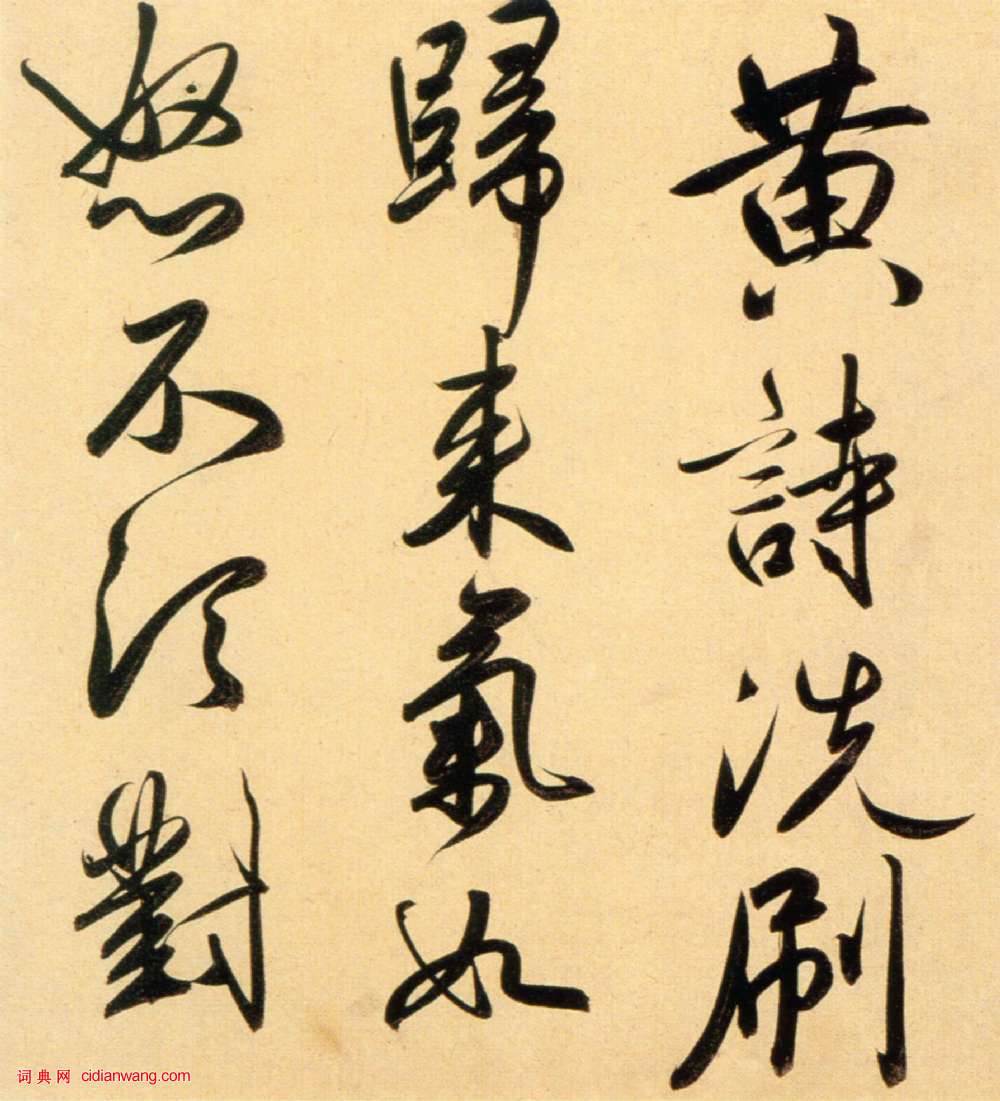 黄詩洗刷
歸来氣如
怒不須對
词典网 cidianwang.com